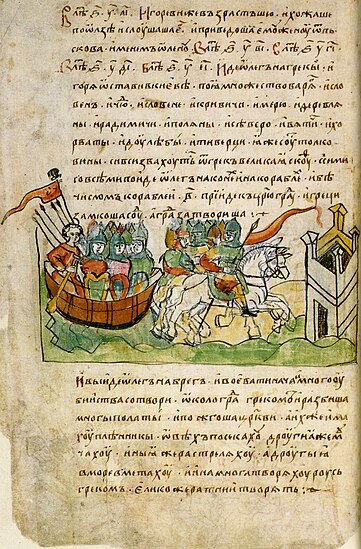 В лѣт ҂ѕ҃ у҃ аі҃ · Игореви же възрастъшю · и хожаше
по ѡлзѣ и слоушаше г҃ · и приведоша емоу женоу ѿ пь
скова · именемъ ѡленоу · В лѣт ҂ѕ҃ у҃ ві҃ · В лѣт ҂ѕ҃ у҃ гі҃
В лѣт ҂ѕ҃ у҃ ді҃ · В лѣт ҂ѕ҃ у҃ еі҃ · Иде ѡлегъ на грекы · и
горѧ ѡстави в киевѣ · поѧ множество варѧгъ · и сло
венъ · и чюⷣ · и словени · и кривичи · и мерю · и деревлѧ
ны · и радимичи · и полѧны · и сѣверо · и вѧтичи · и хо
рваты · и доулѣбы · и тиверци · ѧже соуⷮ толко
вины · си вси звахоутⸯ ѿ грекъ великаѧ скоуⷴ · и с ими
со всѣми поиде ѡлегъ на конеⷯ и на кораблеⷯ · и бѣ
числомъ кораблеи · ҂в҃ · прииде къ цр҃юграⷣ · и греци
замкоша соуⷣ · а граⷣ затвориша ·
И выиде ѡлгъ на брегъ · и воевати нача · и много оу
биистⸯва сотвори · ѡколо граⷣ грекомъ · и разбиша
многы полаты · и пожгоша црⷪкви · а иⷯ же има
хоу плѣнникы · ѡвѣхъ посекахоу · дроугиа же моу
чахоу · иныѧ же растрелѧхоу · а дроугыѧ
в море вметахоу · и ина многа творѧхоу роусь
грекомъ · елико же ратнии творѧть :